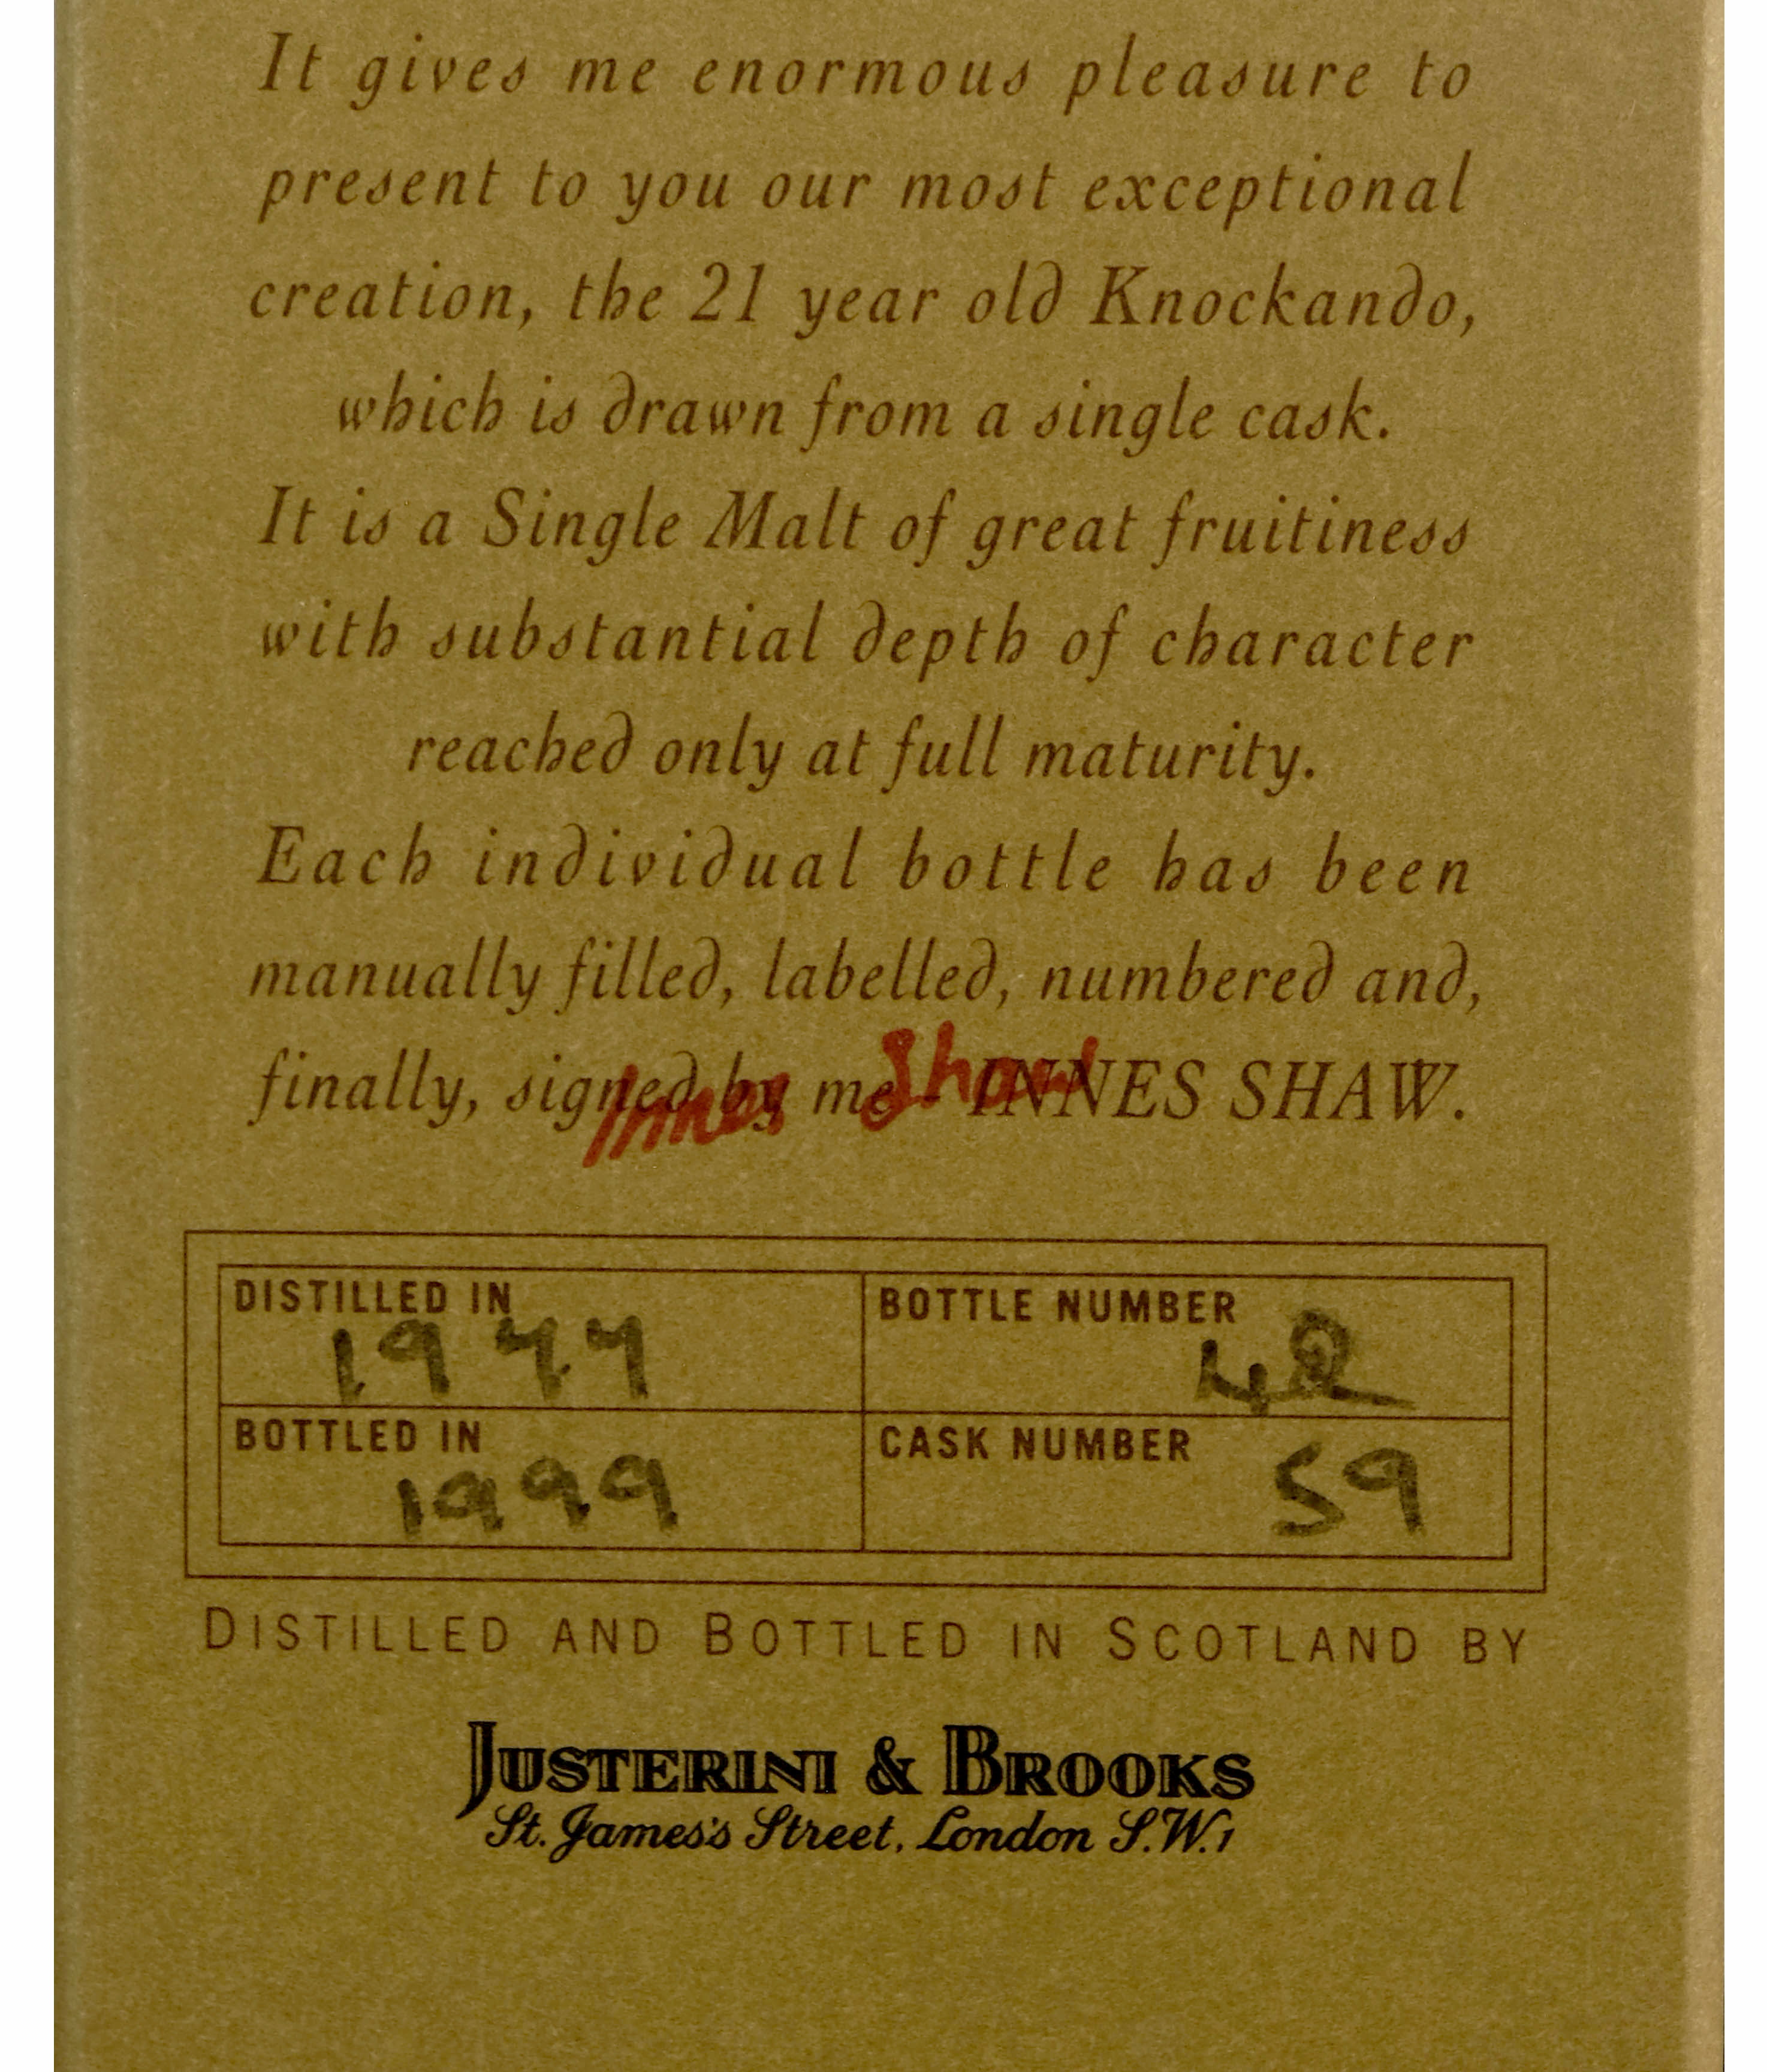 It gives me enormous pleasure to
present to you our most exceptional
creation, the 21 year old Knockando,
which is drawn from a single cask.
It is a Single Malt of great fruitiness
with substantial depth of character
reached only at full maturity.
Each individual bottle has been
manually filled, labelled, numbered and,
finally, signed by me - INNES SHAW.
Innes Shaw
DISTILLED IN
1977
BOTTLE NUMBER
42
BOTTLED IN
1999
CASK NUMBER
59
DISTILLED AND BOTTLED IN SCOTLAND BY
JUSTERINI & BROOKS
St. James's Street, London S.W.1